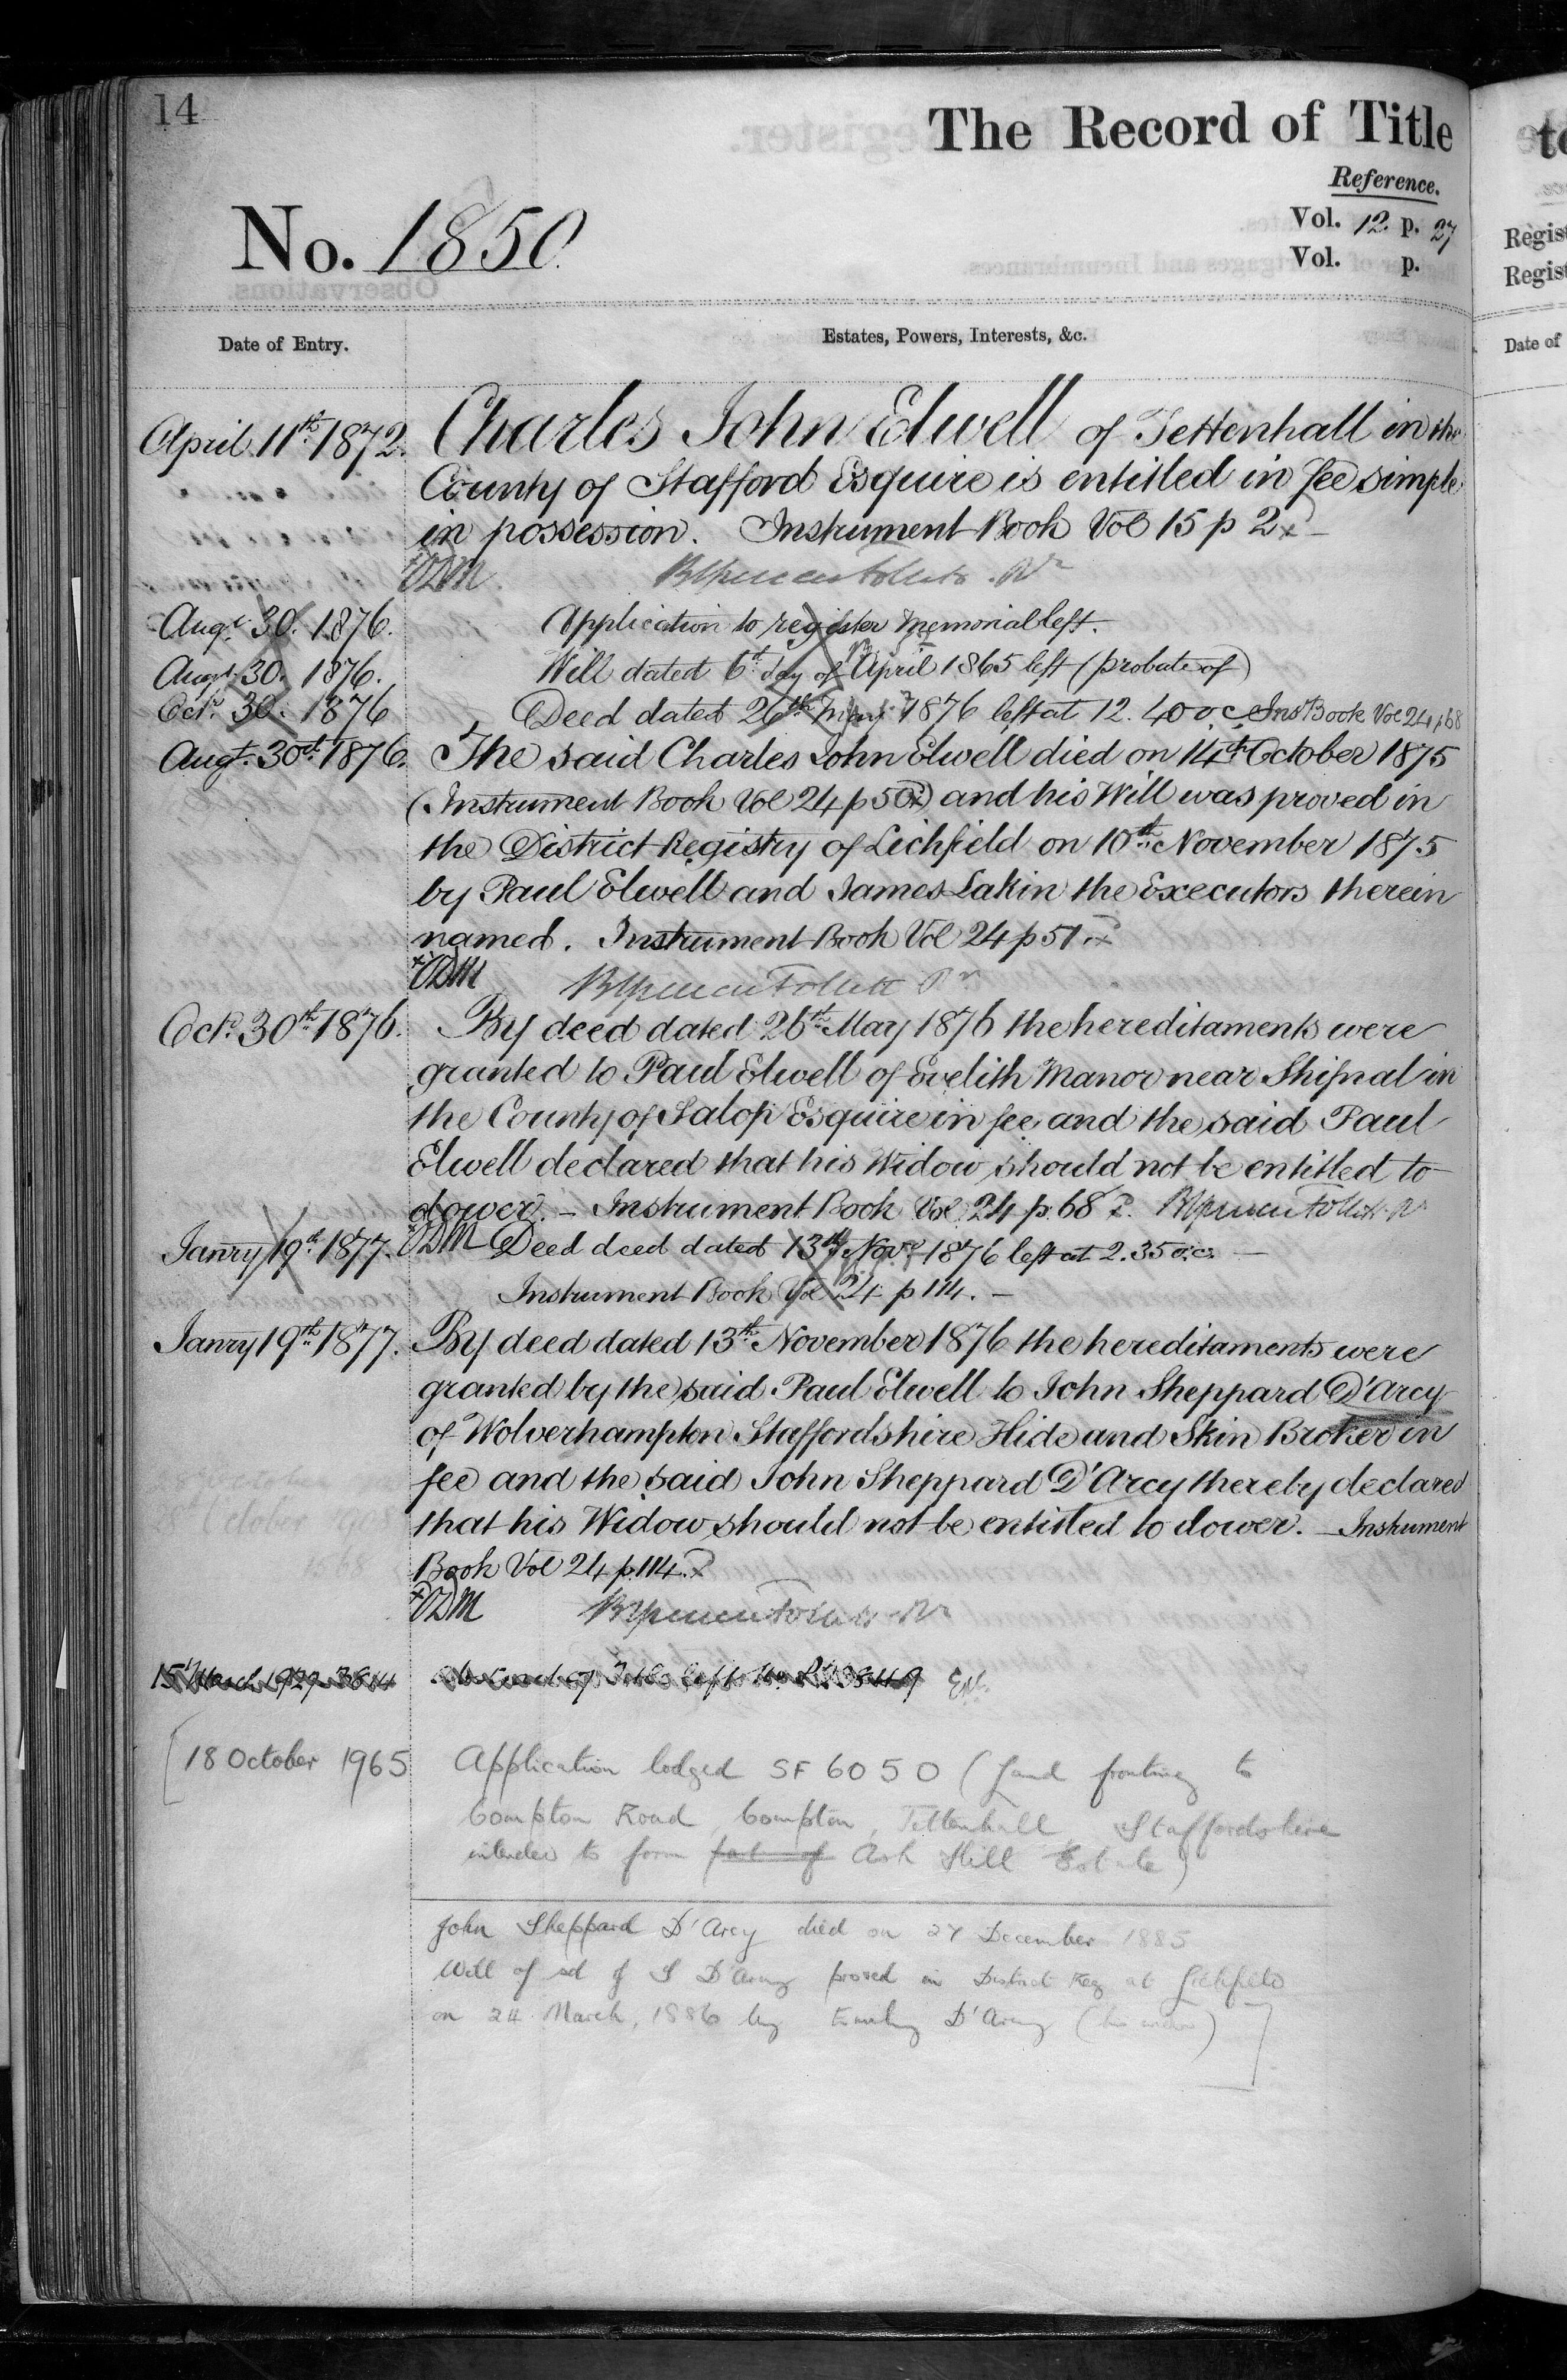 14
The Record of Title
Reference.
Vol. 12. p. 27
Vol. p.
No. 1850.
Date of Entry.
Estates, Powers, Interests, &c.
April 11th 1872. Charles John Elwell of Tettenhall in the
County of Stafford Esquire is entitled in fee simple
in possession. Instrument Book Vol 15 p 2
ODM
Augt 30. 1876. Application to register memorial left.
Augt 30. 1876. Will dated 6th day of April 1865 left (probate of)
Octr 30. 1876 Deed dated 26th May 1876 left at 12.40 oc Ins Book Vol 24 p 68
Augt 30th 1876. The said Charles John Elwell died on 14th October 1875
(Instrument Book Vol 24 p 50) and his Will was proved in
the District Registry of Lichfield on 10th November 1875
by Paul Elwell and James Lakin the Executors therein
named. Instrument Book Vol 24 p 51.
ODM
Octr 30th 1876. By deed dated 26th May 1876 the hereditaments were
granted to Paul Elwell of Evelith Manor near Shifnal in
the County of Salop Esquire in fee and the said Paul
Elwell declared that his Widow should not be entitled to
dower. – Instrument Book Vol 24 p 68
Janry 19th 1877. ODM Deed deed dated 13th Novr 1876 left at 2.35 o.c. –
Instrument Book Vol 24 p 114. –
Janry 19th 1877. By deed dated 13th November 1876 the hereditaments were
granted by the said Paul Elwell to John Sheppard D'Arcy
of Wolverhampton Staffordshire Hide and Skin Broker in
fee and the said John Sheppard D'Arcy thereby declared
that his Widow should not be entitled to dower. – Instrument
Book Vol 24 p 114.
ODM
15 March 1929 Abstract of Title left
18 October 1965 Application lodged SF 6050 (land fronting to
Compton Road, Compton, Tettenhall, Staffordshire
intended to form part of Ash Hill Estate)
John Sheppard D'Arcy died on 27 December 1885
Will of sd J S D'Arcy proved in District Reg at Lichfield
on 24 March, 1886 by Emily D'Arcy (his widow)
to
Regis
Regist
Date of